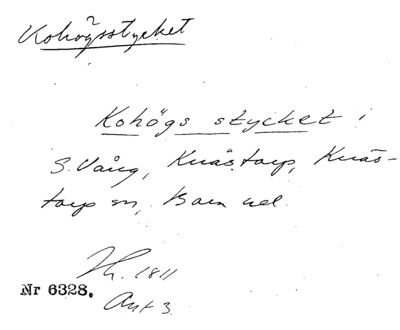 Kohögsstycket
Kohögs stycket i
S. Vång, Knästorp, Knäs-
torp sn, Bara hd.
Nr 6328.
1811
Akt 3.